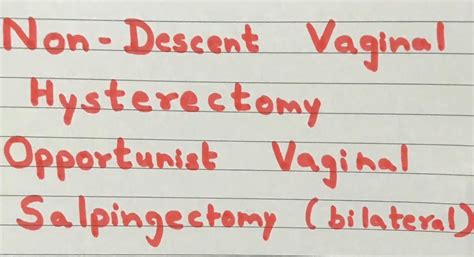 Non-Descent Vaginal
Hysterectomy
Opportunist Vaginal
Salpingectomy (bilateral)